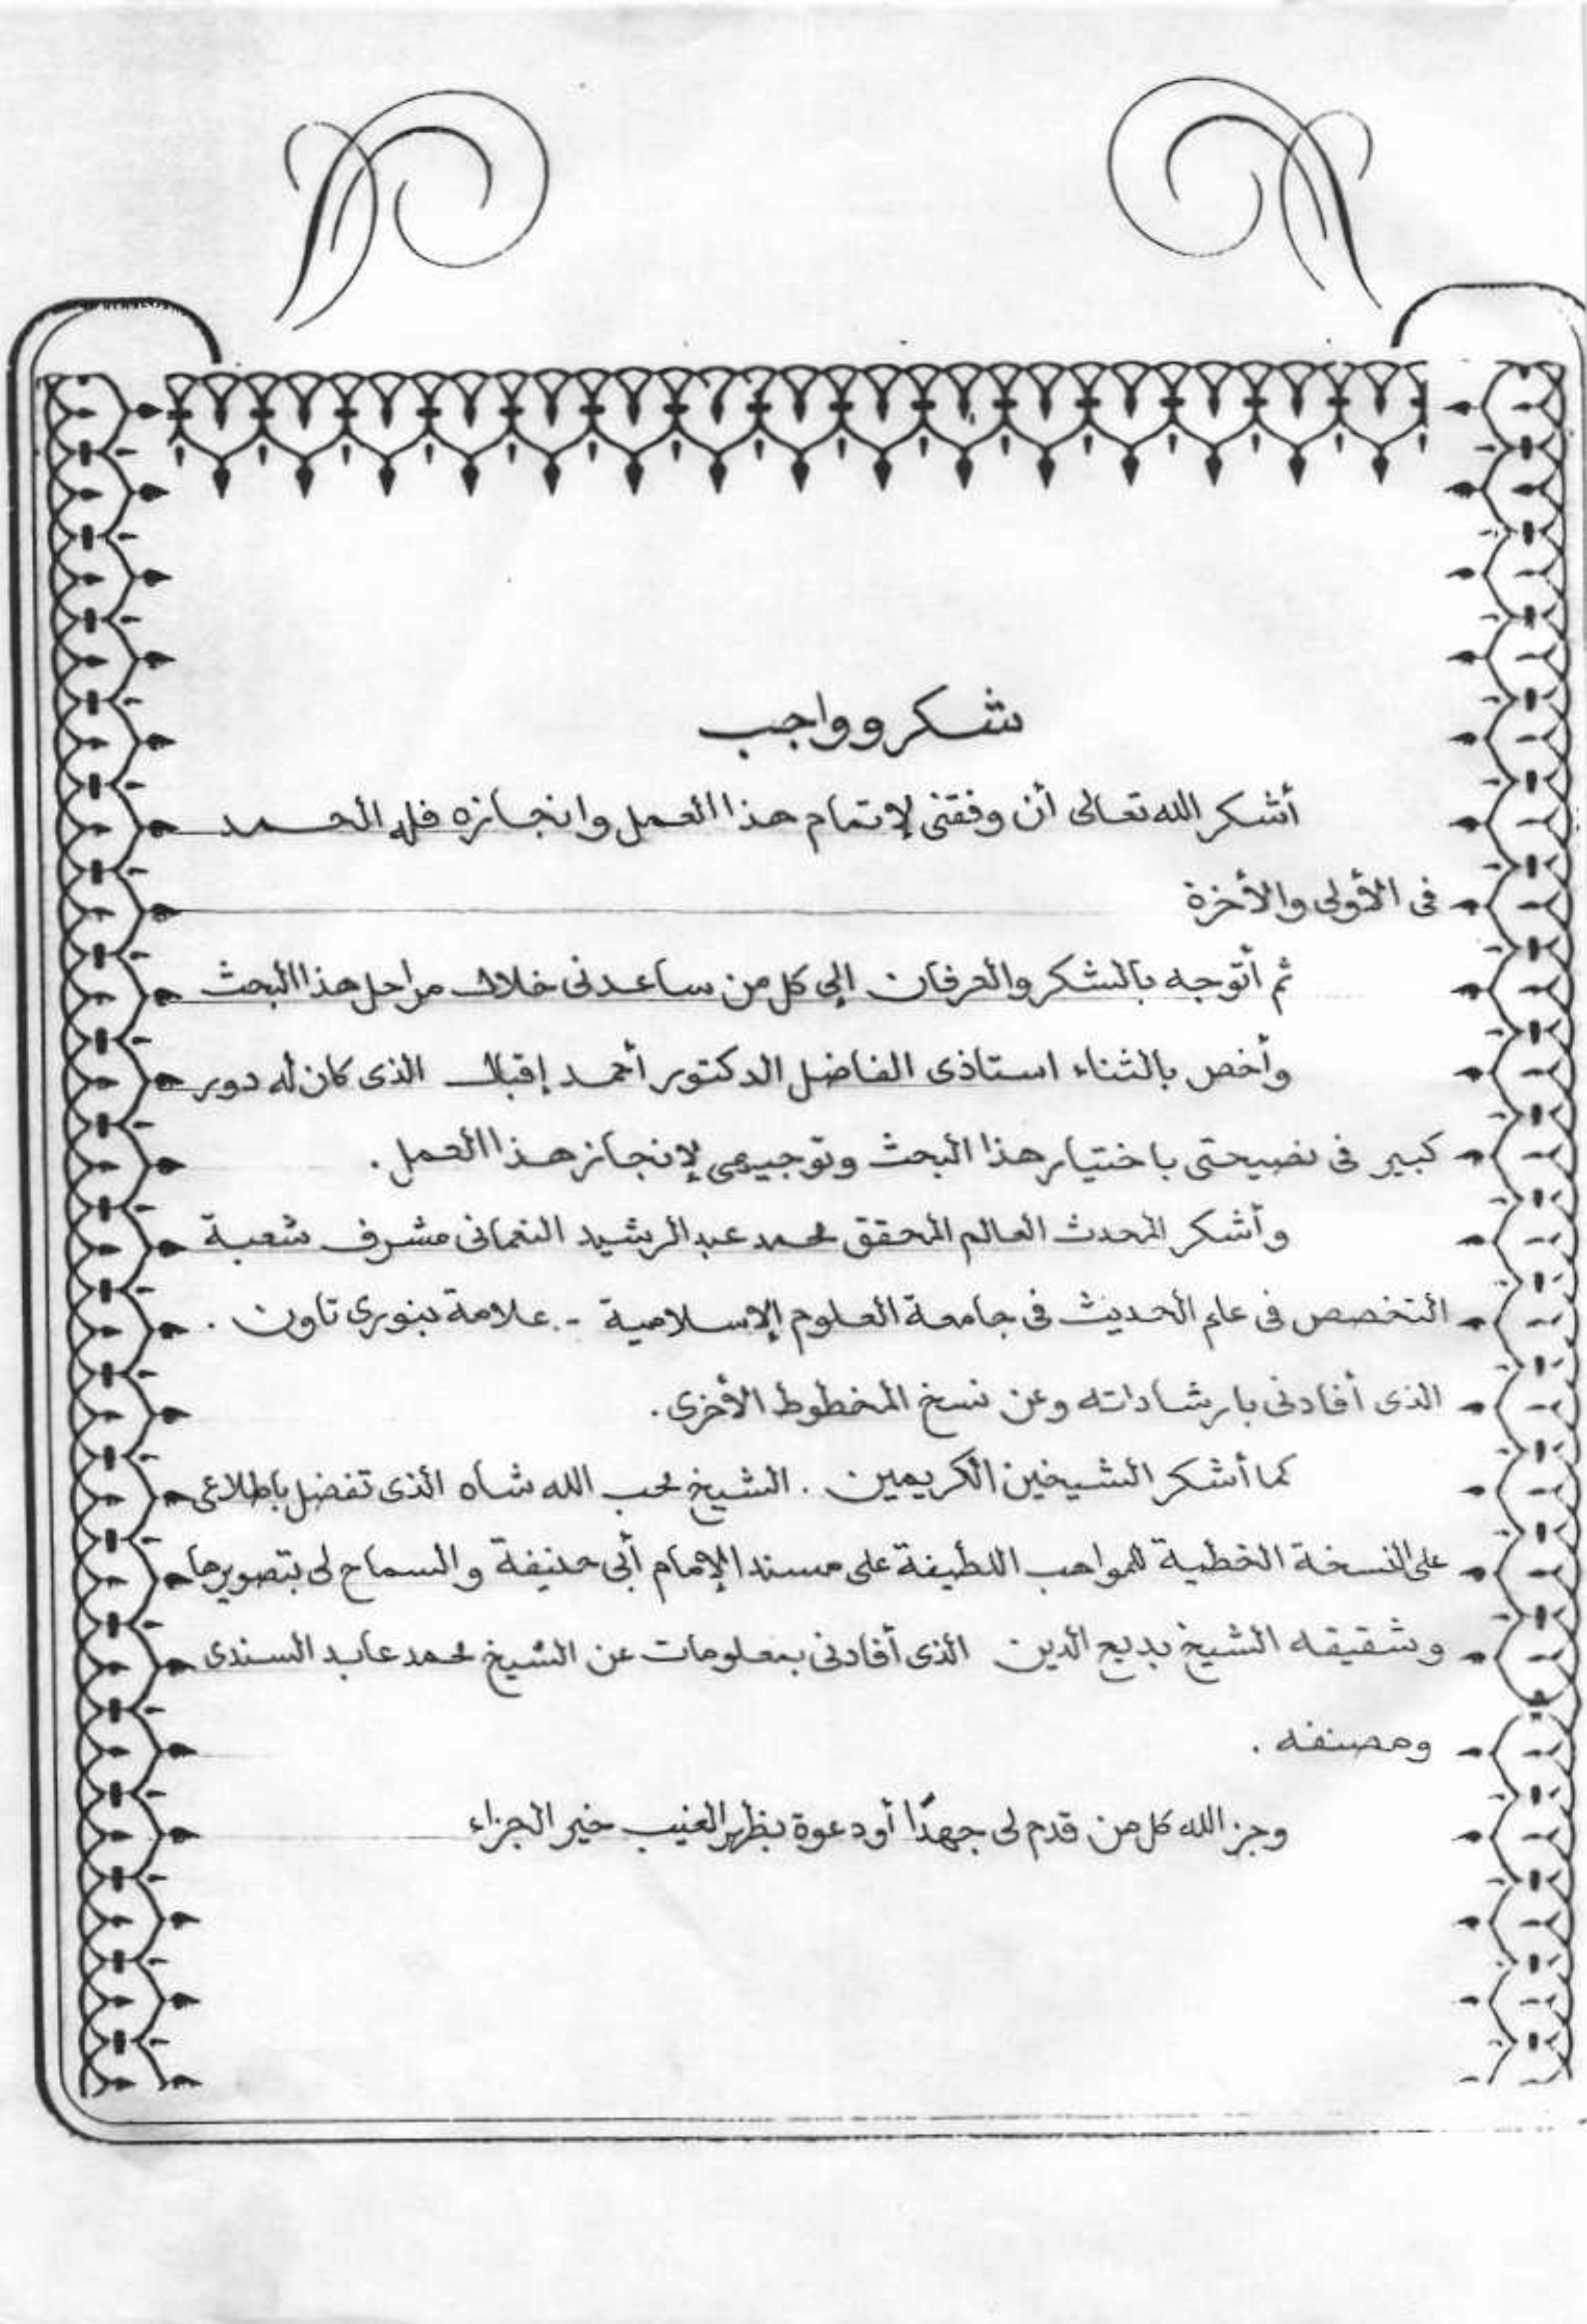 شكر وواجب
أشكر الله تعالى أن وفقنى لإتمام هذا العمل وانجازه فله الحمد
فى الأولى والأخرة
ثم أتوجه بالشكر والعرفان إلى كل من ساعدنى خلال مراحل هذا البحث
وأخص بالثناء استاذى الفاضل الدكتور أحمد إقبال الذى كان له دور
كبير فى نصيحتى باختيار هذا البحث وتوجيهى لإنجاز هذا العمل .
وأشكر المحدث العالم المحقق محمد عبد الرشيد النعمانى مشرف شعبة
التخصص فى علم الحديث فى جامعة العلوم الإسلامية - علامة بنورى تاون .
الذى أفادنى بارشاداته وعن نسخ المخطوط الأخرى .
كما أشكر الشيخين الكريمين . الشيخ محب الله شاه الذى تفضل باطلاعى
على النسخة الخطية للمواهب اللطيفة على مسند الإمام أبى حنيفة والسماح لى بتصويرها
وشقيقه الشيخ بديع الدين الذى أفادنى بمعلومات عن الشيخ محمد عابد السندى
ومصنفه .
وجز الله كل من قدم لى جهدًا أو دعوة بظهر الغيب خير الجزاء